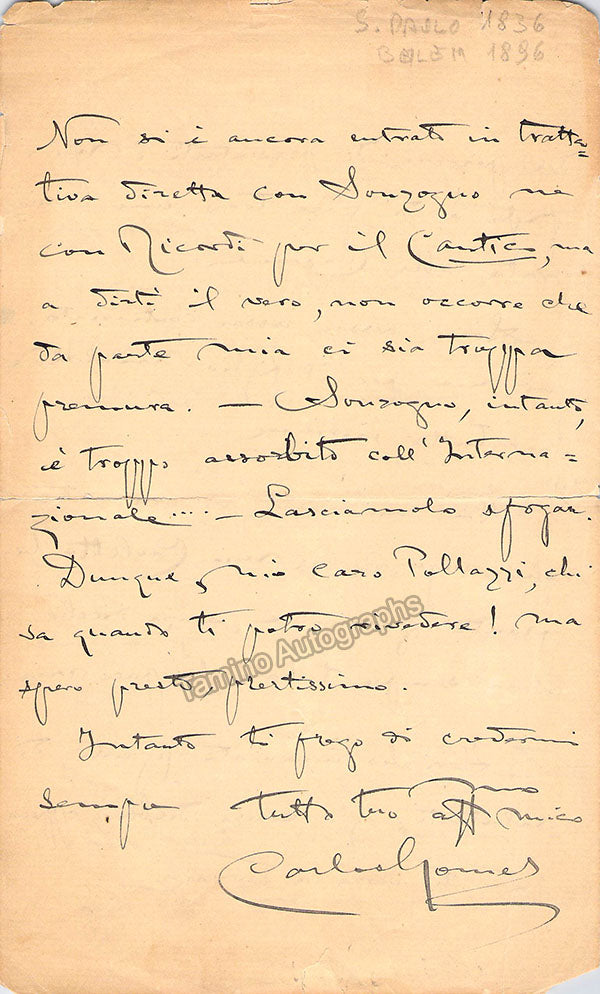 S. PAULO 1836
BELEM 1896
Non si è ancora entrato in tratta=
tiva diretta con Sonzogno ne
con Ricordi per il Cantico, ma
a dirti il vero, non occorre che
da parte mia ci sia troppa
premura. — Sonzogno, intanto,
è troppo assorbito coll'Interna=
zionale.... — Lasciamolo sfogar.
Dunque, mio caro Pollazzi, chi
sa quando ti potrò rivedere! ma
spero presto prestissimo.
Tamino Autographs
Intanto ti prego di credermi
sempre tutto tuo affmo amico
Carlos Gomes